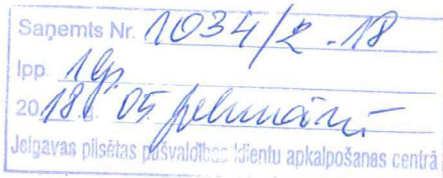 Saņemts Nr. 1034/2-18
Ipp. 1lp
2018. 05. februārī
Jelgavas pilsētas pašvaldības klientu apkalpošanas centrā